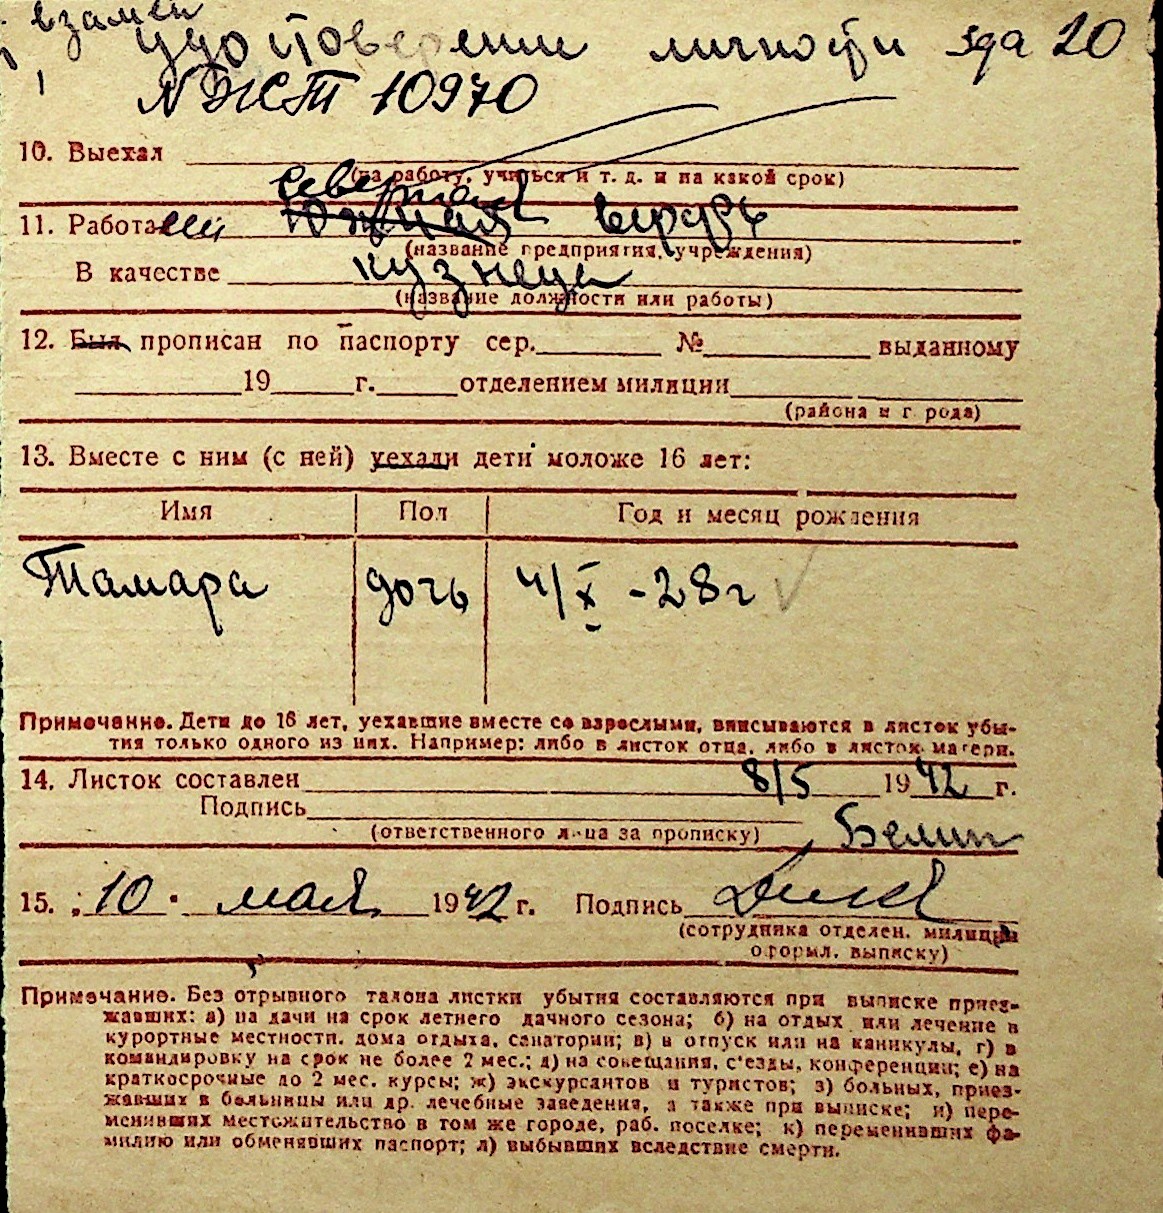 взамен
удостоверение личности
№ ЖТ 10970
10. Выехал
(на работу, учиться и т. д. и на какой срок)
Северная
11. Работа Южная верфь
(название предприятия, учреждения)
В качестве кузнеца
(название должности или работы)
12. Был прописан по паспорту сер. № выданному
19 г. отделением милиции
(района и города)
13. Вместе с ним (с ней) уехали дети моложе 16 лет:
Имя Пол Год и месяц рождения
Тамара дочь 4/X - 28 г
Примечание. Дети до 16 лет, уехавшие вместе со взрослыми, вписываются в листок убы-
тия только одного из них. Например: либо в листок отца, либо в листок матери.
14. Листок составлен 8/5 1942 г.
Подпись
(ответственного лица за прописку)
15. 10 мая 1942 г. Подпись
(сотрудника отделен. милиции
оформл. выписку)
Примечание. Без отрывного талона листки убытия составляются при выписке приез-
жавших: а) на дачи на срок летнего дачного сезона; б) на отдых или лечение в
курортные местности, дома отдыха, санатории; в) в отпуск или на каникулы, г) в
командировку на срок не более 2 мес.; д) на совещания, с'езды, конференции; е) на
краткосрочные до 2 мес. курсы; ж) экскурсантов и туристов; з) больных, приез-
жавших в больницы или др. лечебные заведения, а также при выписке; и) пере-
менивших местожительство в том же городе, раб. поселке; к) переменивших фа-
милию или обменявших паспорт; л) выбывших вследствие смерти.